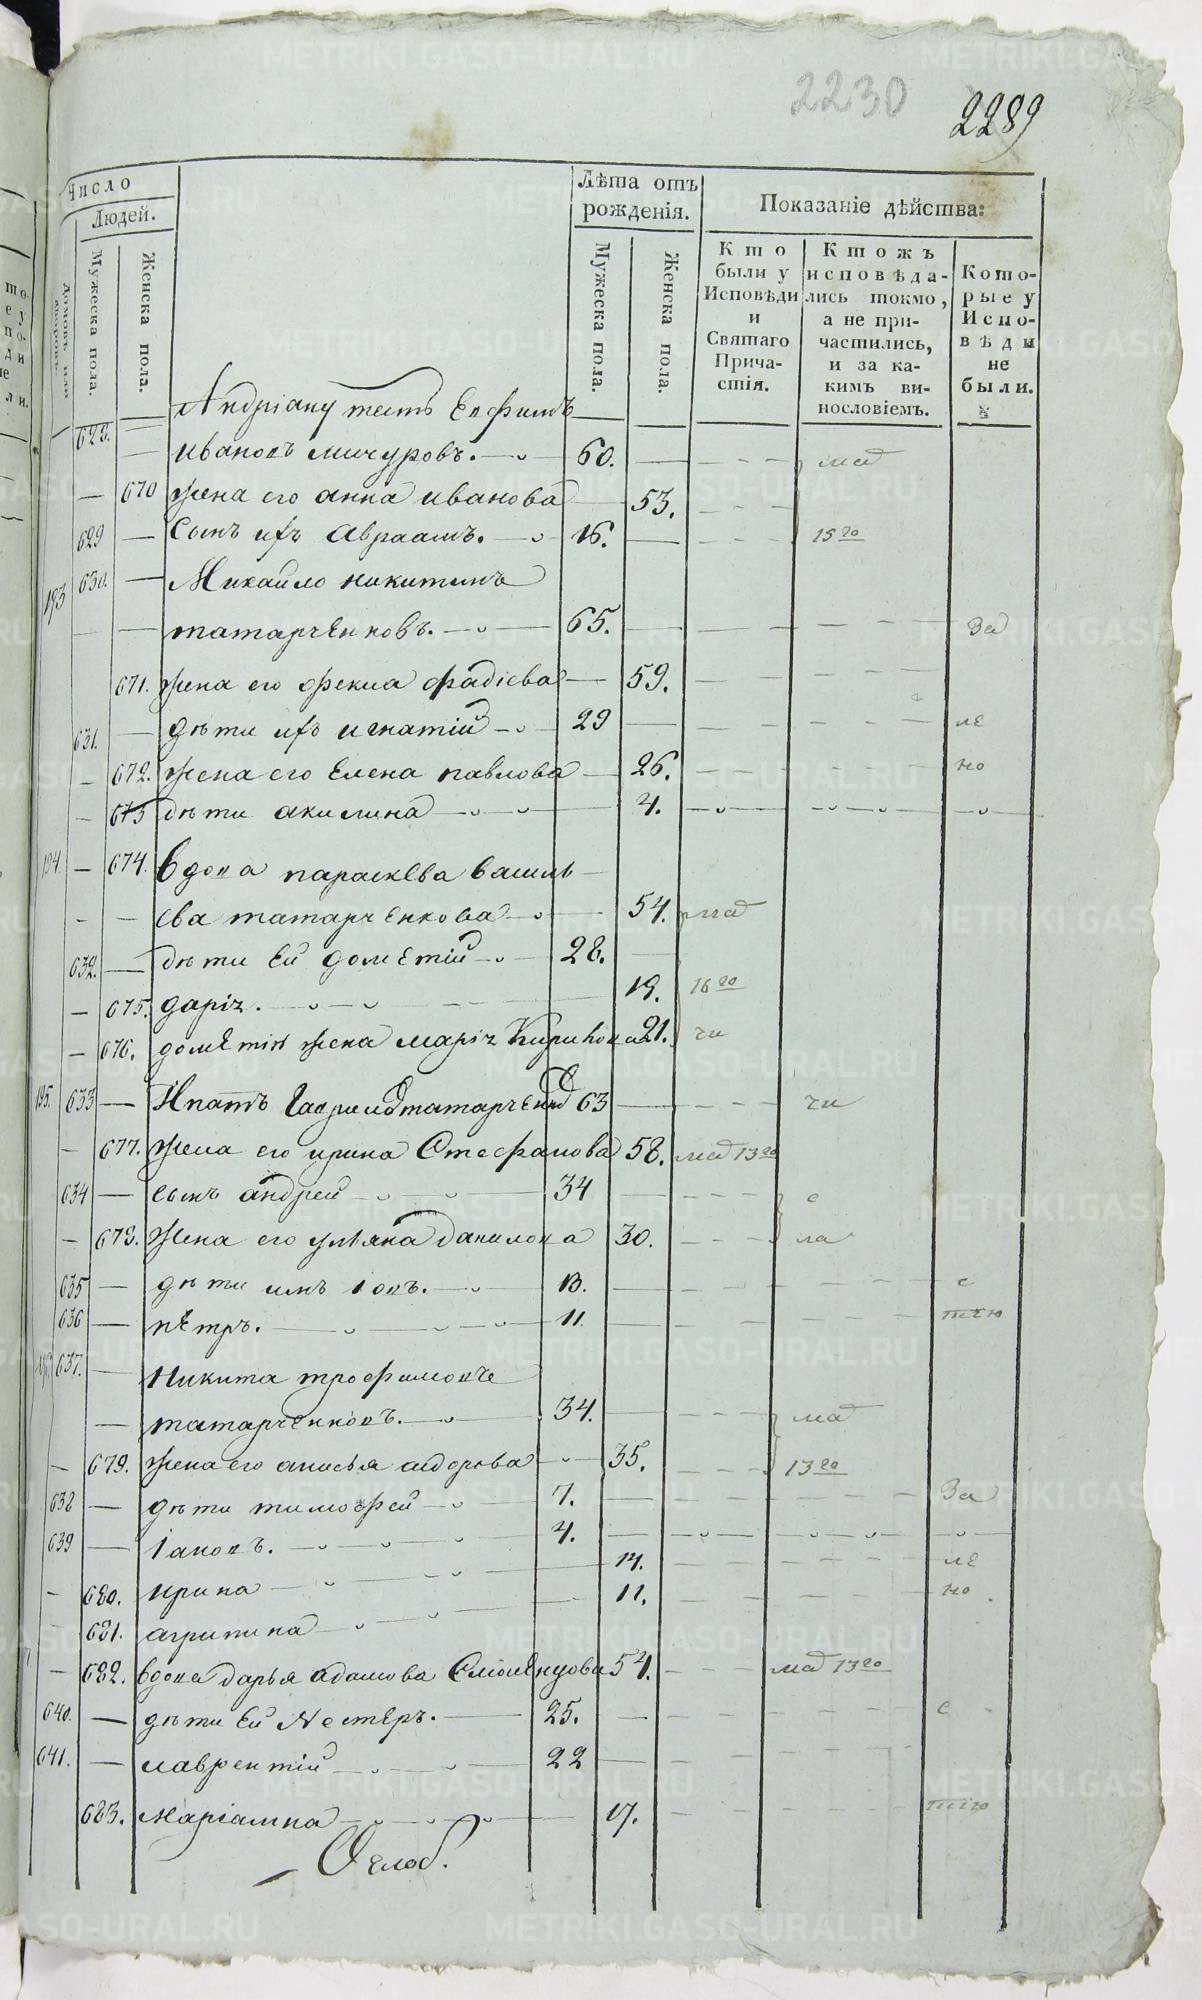 2230
2289
Число
Людей.
Домовъ или дворовъ.
Мужеска пола.
Женска пола.
Лѣта отъ рожденія.
Мужеска пола.
Женска пола.
Показаніе дѣйства:
Кто были у Исповѣди и Святаго Причастія.
Ктожъ исповѣдались токмо, а не причастились, и за какимъ винословіемъ.
Которые у Исповѣди не были.
628. — Андріану тесть Ефимъ
Ивановъ Мичуровъ. 60. мад
— 670 жена его анна иванова 53.
629 — сынъ ихъ Авраамъ. 16. 15го
193 630. — Михайло никитинъ
татарченковъ. 65. За
671. жена его фекла фадіева 59.
631. — дѣти ихъ игнатій 29 ле
— 672. жена его Елена павлова 26. но
— 673 дѣти акилина 4.
194. — 674. вдова параскева василь
ева татарченкова 54. мад
632. — дѣти ей дометій 28.
— 675. дарія. 19. 16го
— 676. дометія жена марія Кирикова 21. чи
195. 633 — Ипатъ Гаврилов татарченков 63 чи
— 677. жена его ирина Стефанова 58. мад 13го
634 — сынъ андрей 34 с
— 678. жена его уліяна данилова 30. ла
635 — дѣти имъ іовъ. 13. с
636 — петръ. 11. тию
637. — Никита трофимовъ
— татарченковъ. 34. мад
— 679. жена его анисья сидорова 35. 13го
638 — дѣти тимофей 7. За
639 — Іаковъ. 4.
— 680. ирина 14. ле
681. агрипина 11. но
— 682. вдова дарья адамова Смоленцова 54. мад 13го
640. — дѣти ей Нестеръ. 25. с
641. — лаврентій 22
683. маріамна 17. тию
METRIKI.GASO-URAL.RU